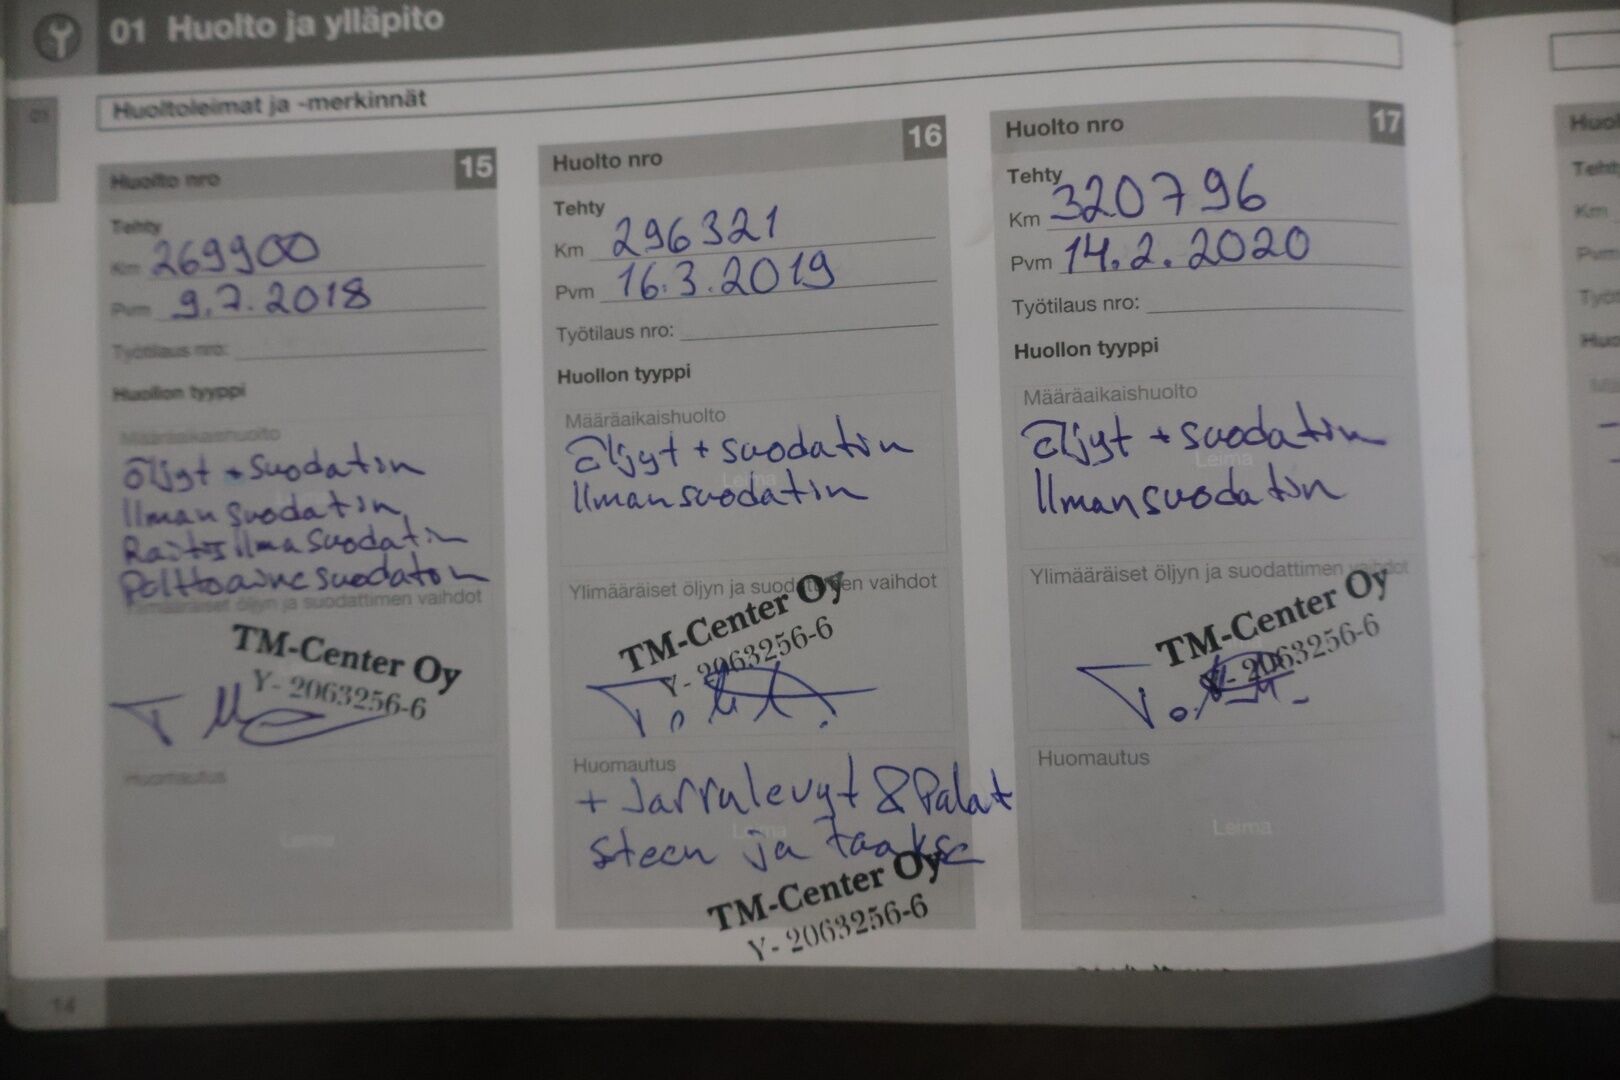 01 Huolto ja ylläpito
01
Huoltoleimat ja -merkinnät
Huolto nro 15
Tehty
Km 269900
Pvm 9.7.2018
Työtilaus nro:
Huollon tyyppi
Määräaikaishuolto
Öljyt + suodatin
Ilmansuodatin
Raitisilmasuodatin
Polttoainesuodatin
Ylimääräiset öljyn ja suodattimen vaihdot
TM-Center Oy
Y- 2063256-6
Huomautus
Leima
Huolto nro 16
Tehty
Km 296321
Pvm 16.3.2019
Työtilaus nro:
Huollon tyyppi
Määräaikaishuolto
Öljyt + suodatin
Leima
Ilmansuodatin
Ylimääräiset öljyn ja suodattimen vaihdot
TM-Center Oy
Y- 2063256-6
Huomautus
+ Jarrulevyt & Palat
Leima
eteen ja taakse
TM-Center Oy
Y- 2063256-6
Huolto nro 17
Tehty
Km 320796
Pvm 14.2.2020
Työtilaus nro:
Huollon tyyppi
Määräaikaishuolto
Öljyt + suodatin
Leima
Ilmansuodatin
Ylimääräiset öljyn ja suodattimen vaihdot
TM-Center Oy
Y- 2063256-6
Huomautus
Leima
14